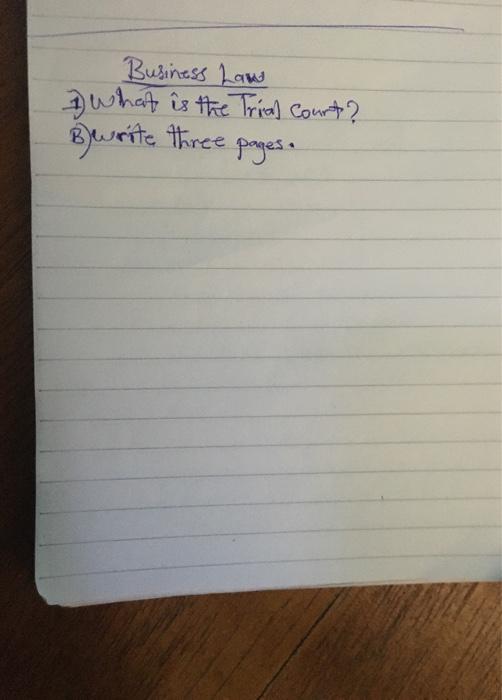 Business Law
1) What is the Trial Court?
B) write three pages.